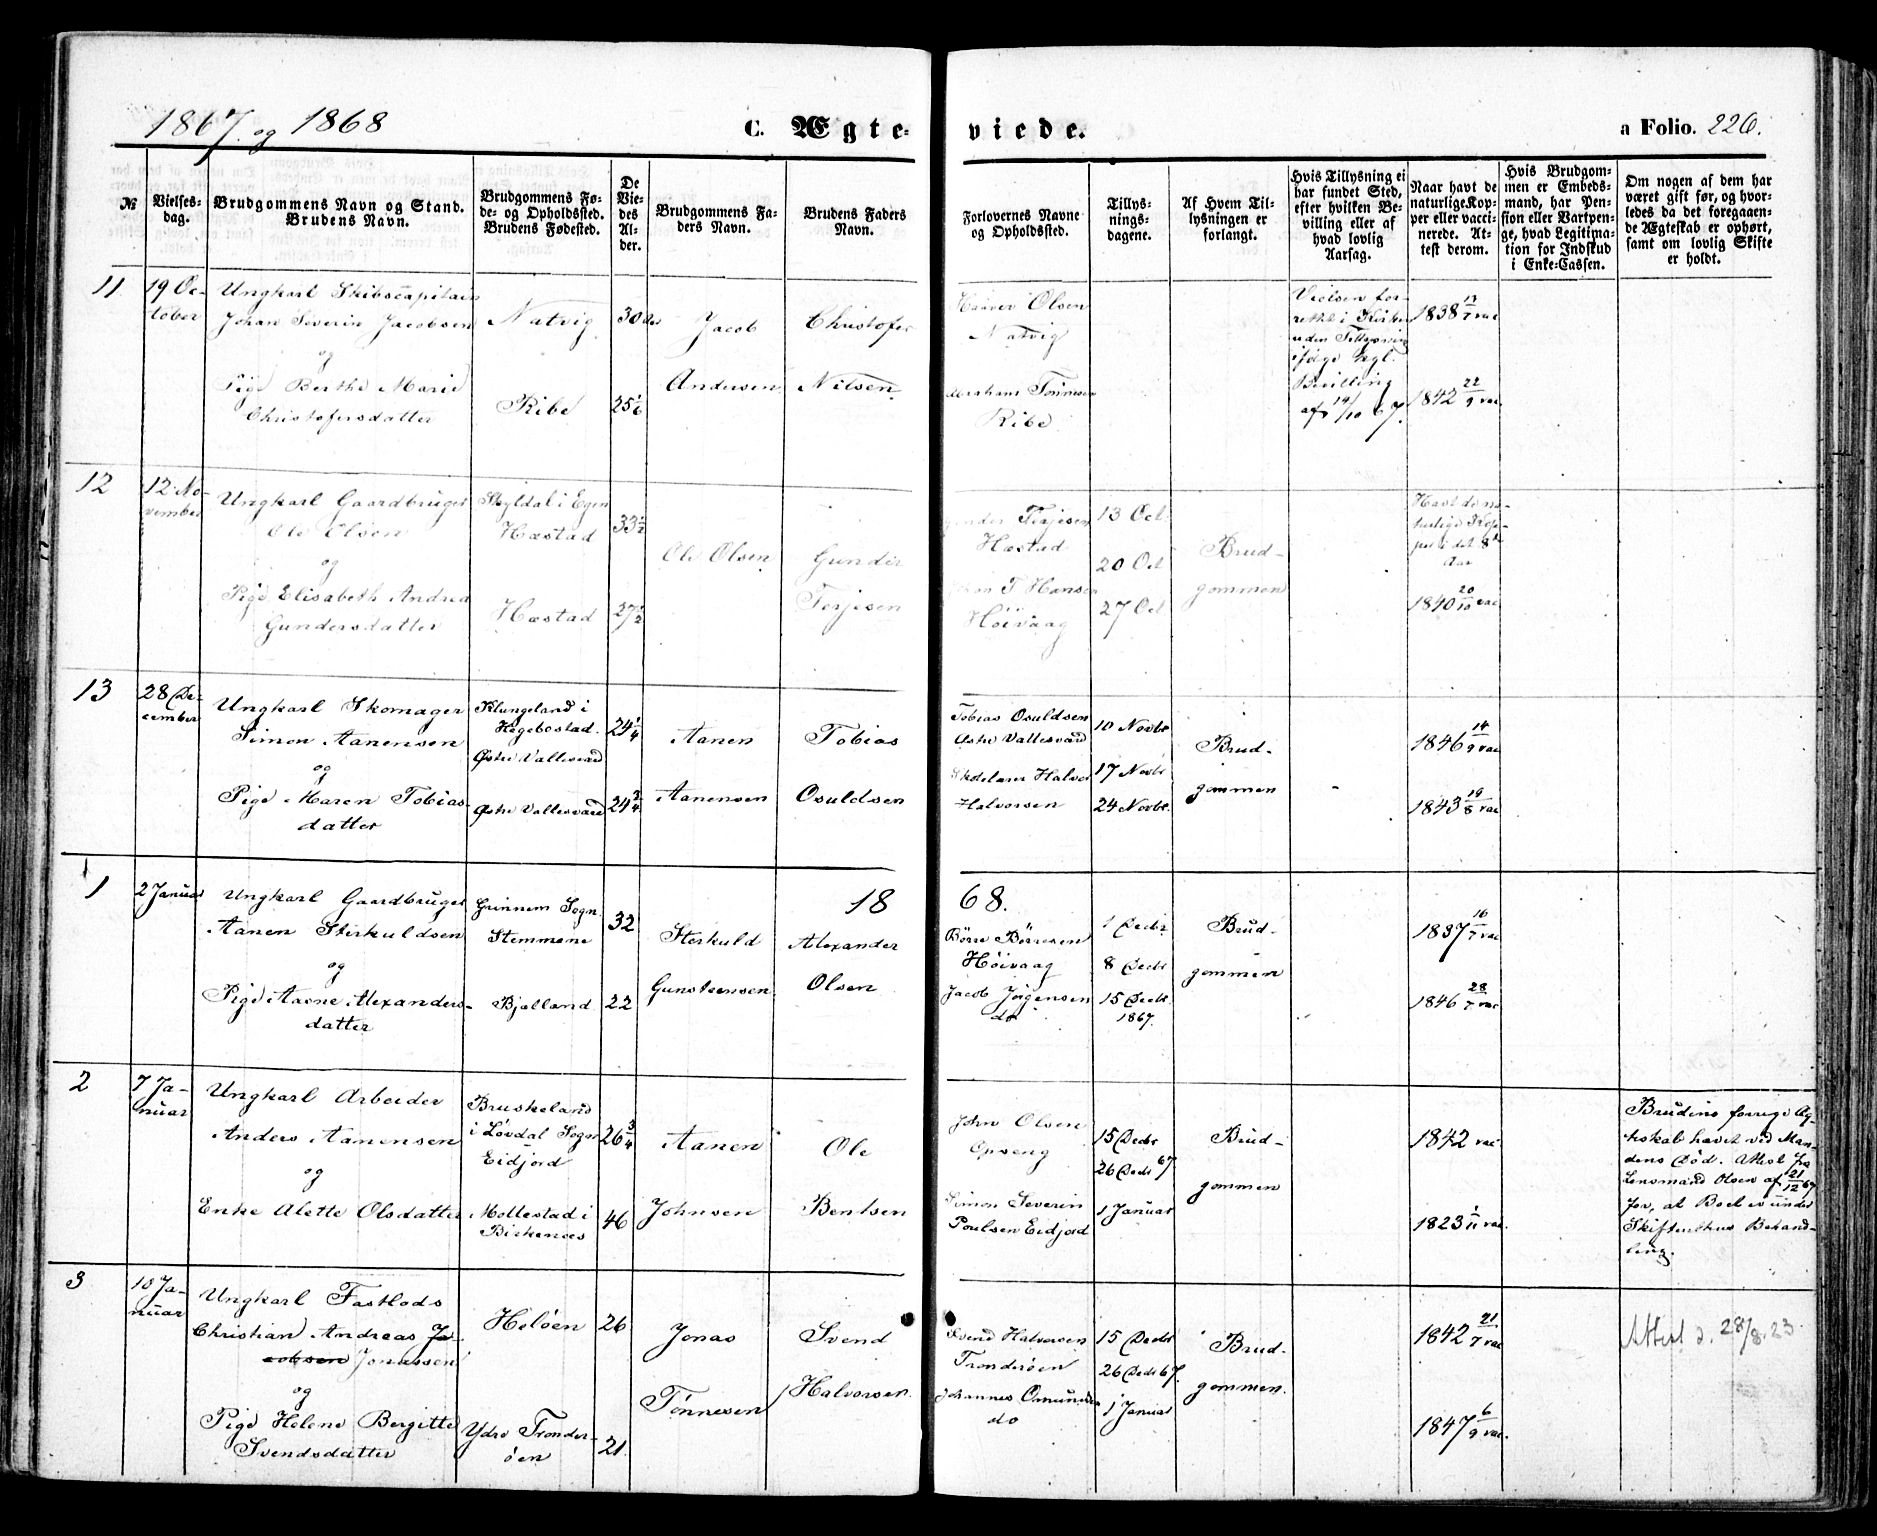 1867 og 1868
C. Ægte-
viede.
a Folio. 226.
№
Vielses-
dag.
Brudgommens Navn og Stand.
Brudens Navn.
Brudgommens Fø-
de- og Opholdssted.
Brudens Fødested.
De
Vie-
des
Al-
der.
Brudgommens Fa-
ders Navn.
Brudens Faders
Navn.
Forlovernes Navne
og Opholdssted.
Tillys-
nings-
dagene.
Af Hvem Til-
lysningen er
forlangt.
Hvis Tillysning ei
har fundet Sted,
efter hvilken Be-
villing eller af
hvad lovlig
Aarsag.
Naar havt de
naturlige Kop-
per eller vacci-
nerede. At-
test derom.
Hvis Brudgom-
men er Embeds-
mand, har Pen-
sion eller Vartpen-
ge, hvad Legitima-
tion for Indskud
i Enke-Cassen.
Om nogen af dem har
været gift før, og hvor-
ledes da det foregaaen-
de Ægteskab er ophørt,
samt om lovlig Skifte
er holdt.
11
19 Oc-
tober
Ungkarl Skibscapitain
Johan Severin Jacobsen
og
Pige Berthe Marie
Christofersdatter
Natvig
Ribe
30
25 1/6
Jacob
Andersen
Christofer
Nilsen
Haaver Olsen
Natvig
Abraham Tønnesen
Ribe
Vielsen for-
rettet i Kirken
uden Tillysning
ifølge kgl.
Bevilling
af 14/10 67.
1838 13/7 vac
1842 22/9 vac
12
12 No-
vember
Ungkarl Gaardbruger
Ole Olsen
og
Pige Elisabeth Andrea
Gundersdatter
Skyldal i Egen
Hæstad
Hæstad
33 1/2
27 1/2
Ole Olsen
Gunder
Terjesen
Gunder Terjesen
Hæstad
T Hansen
Høivaag
13 Oct
20 Oct
27 Oct
Brud-
gommen
Havt de na-
turlige Kop-
per i det 8de
Aar
1840 20/10 vac
13
28 De-
cember
Ungkarl Skomager
Simon Aanensen
og
Pige Maren Tobias-
datter
Klungeland i
Hegebostad.
Østre Vallesværd
Østre Vallesværd
24 1/4
24 3/4
Aanen
Aanensen
Tobias
Osuldsen
Tobias Osuldsen
Østre Vallesværd
Skolelærer Halvor
Halvorsen
10 Novbr
17 Novbr
24 Novbr.
Brud-
gommen
1846 14/9 vac
1843 19/8 vac
1868.
1
2 Januar
Ungkarl Gaardbruger
Aanen Sterkuldsen
og
Pige Aasne Alexanders-
datter
Grinnem Sogn
Stemmene
Bjelland
32
22
Sterkuld
Gunsteensen
Alexander
Olsen
Børre Børresen
Høivaag
Jacob Jørgensen
do
1 Decbr
8 Decbr
15 Decbr
1867.
Brud-
gommen
1837 16/7 vac
1846 28/7 vac
2
7 Ja-
nuar
Ungkarl Arbeider
Anders Aanensen
og
Enke Alette Olsdatter
Bruskeland
i Løvdal Sogn
Eidjord
Mollestad i
Birkenæs
26 3/4
46
Aanen
Johnsen
Ole
Bentsen
John Olsen
Opseng
Simon Severin
Poulsen Eidjord
15 Decbr
26 Decbr 67
1 Januar
Brud-
gommen
1842 vac
1823 1/11 vac.
Brudens forrige Æg-
teskab hævet ved Man-
dens Død. Attest fra
Lensmand Olsen af 21/12 67
for, at Boet er under
Skifterettens Behand-
ling.
3
10 Ja-
nuar
Ungkarl Fastlods
Christian Andreas Ja-
cobsen Jonassen
og
Pige Helene Bergitte
Svendsdatter
Heløen
Ydre Tronder-
øen
26
21
Jonas
Tønnesen
Svend
Halvorsen
Svend Halvorsen
Tronderøen
Johannes Omundsen
do
15 Decbr
26 Decbr 67.
1 Januar
Brud-
gommen.
1842 21/7 vac
1847 6/9 vac.
Attest d. 28/8.23.